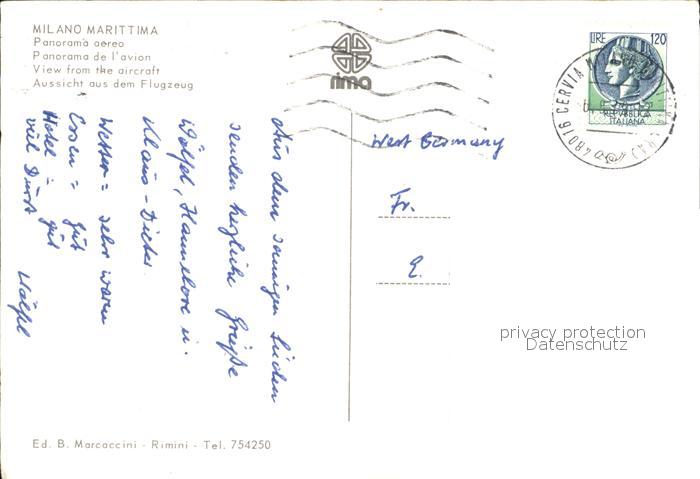 MILANO MARITTIMA
Panorama aereo
Panorama de l'avion
View from the aircraft
Aussicht aus dem Flugzeug
rima
LIRE 120
REPVBBLICA
ITALIANA
48016 CERVIA
West Germany
Fr.
E.
Aus dem sonnigen Süden
senden herzliche Grüße
Wölfel, Hannelore u.
Klaus-Dieter.
Wetter = sehr warm
Essen = gut
Hotel = gut
viel Durst
Wölfel
privacy protection
Datenschutz
Ed. B. Marcaccini - Rimini - Tel. 754250